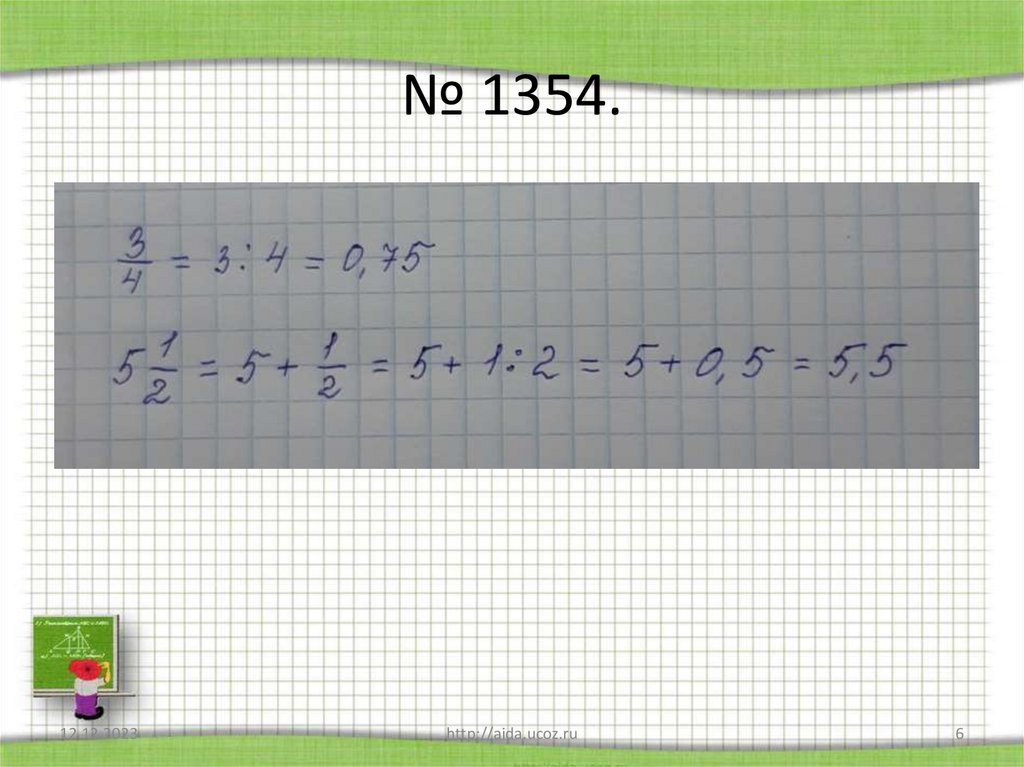 № 1354.
3/4 = 3 : 4 = 0,75
5 1/2 = 5 + 1/2 = 5 + 1 : 2 = 5 + 0,5 = 5,5
12.12.2023
http://aida.ucoz.ru
6